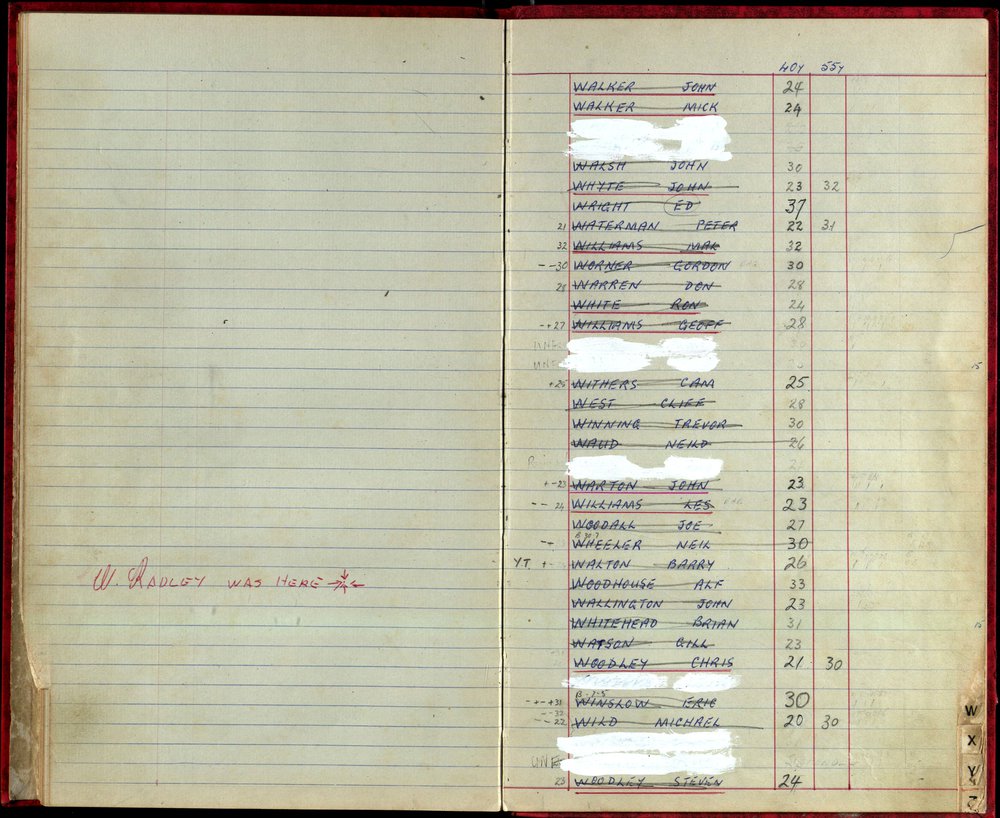 W. RADLEY WAS HERE
40Y 55Y
WALKER JOHN 24
WALKER MICK 24
WALSH JOHN 30
WHYTE JOHN 23 32
WRIGHT ED 37
21 WATERMAN PETER 22 31
32 WILLIAMS MAK 32
--30 WORNER GORDON 30
28 WARREN DON 28
WHITE RON 24
-+27 WILLIAMS GEOFF 28
+25 WITHERS CAM 25
WEST CLIFF 28
WINNING TREVOR 30
WAUD NEILD 26
+-23 WARTON JOHN 23
-- 24 WILLIAMS LES 23
WOODALL JOE 27
-+ WHEELER NEIL 30
YT + WALTON BARRY 26
WOODHOUSE ALF 33
WALLINGTON JOHN 23
WHITEHEAD BRIAN 31
WATSON GILL 23
WOODLEY CHRIS 21 30
B-2-5
-+-+31 WINSLOW ERIC 30
--22 WILD MICHAEL 20 30
UNF
23 WOODLEY STEVEN 24
W
X
Y
Z